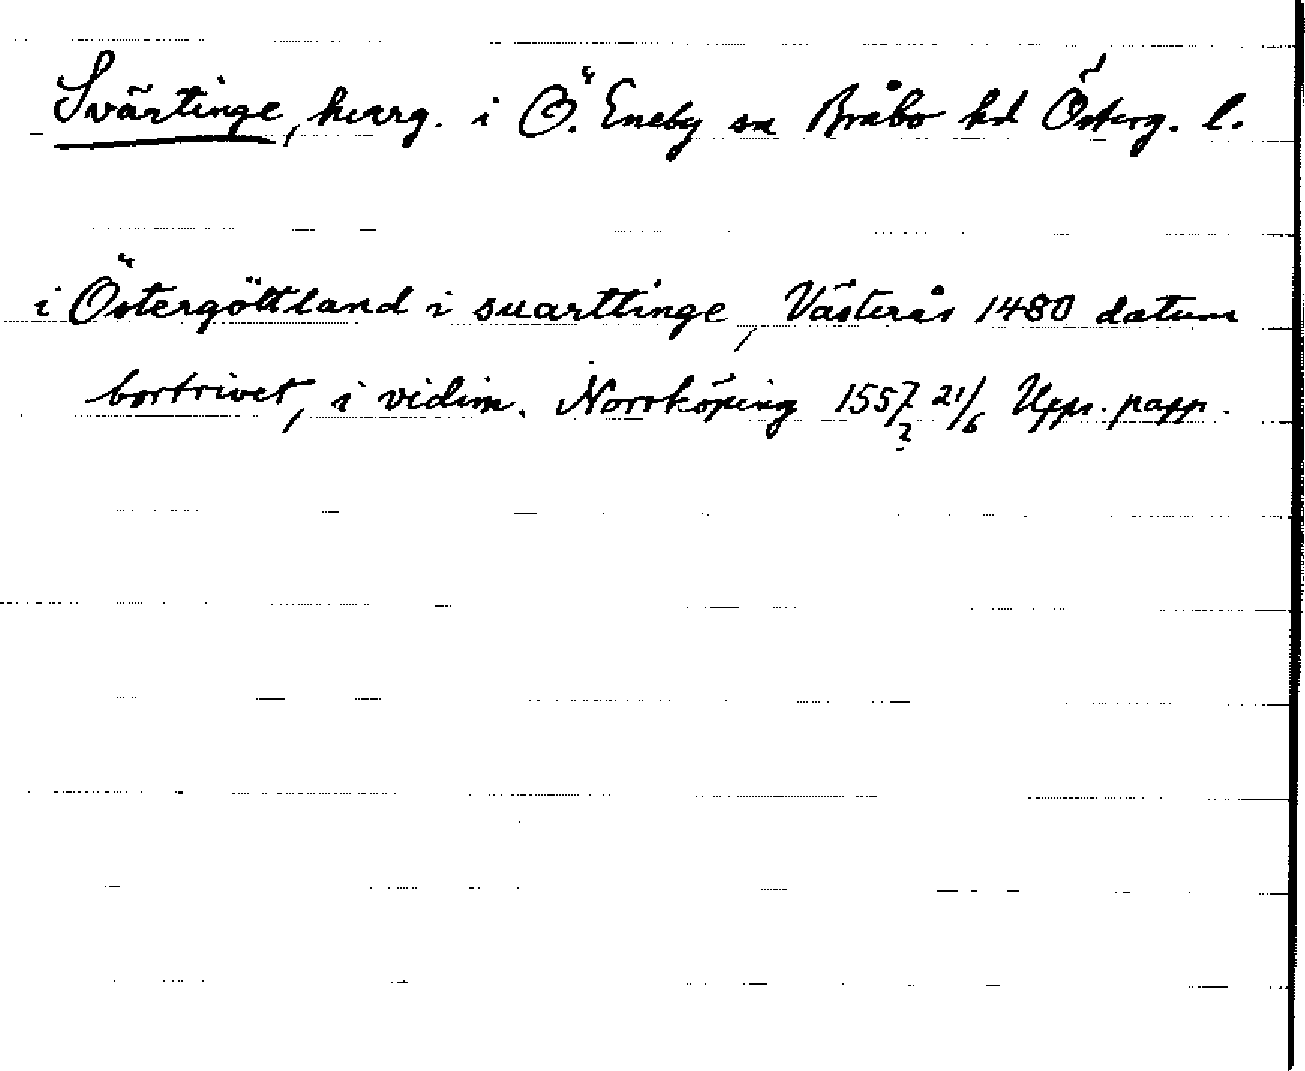 Svärtinge, herrg. i Ö. Eneby sn Bråbo hd Österg. l.
i Östergöttland i suarttinge, Västerås 1480 datum
bortrivet, i vidim. Norrköping 1557 21/6 Upps. papp.
?